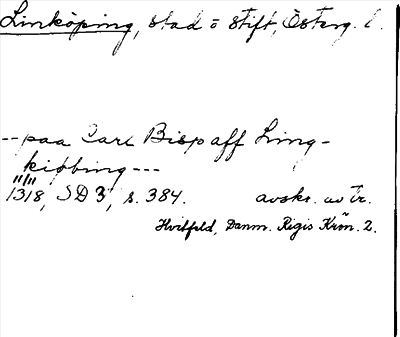 Linköping, stad o stift, Österg. l.
-- paa Carl Bisp aff Ling-
kiøbing ---
11/11
1318, SD 3, s. 384. avskr. av tr.
Hvitfeld, Danm. Rigis Krön. 2.